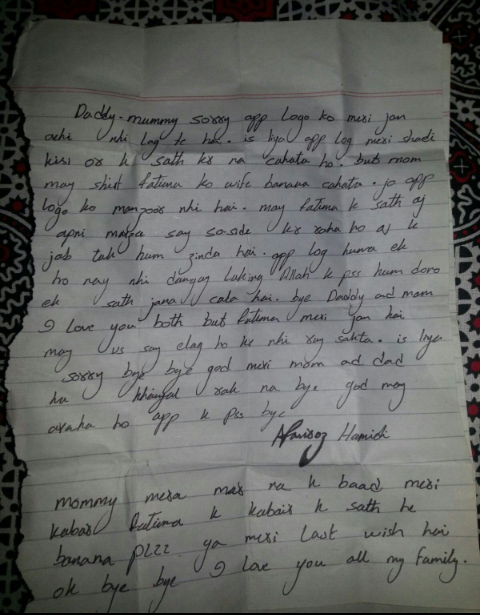 Daddy. mummy sorry app logo ko meri jan
achi nhi lag te hai. is liya app log meri shadi
kisi or k sath kr na cahata ho. but mom
may shirf Fatima ko wife banana cahata. jo app
logo ko manzoor nhi hai. may Fatima k sath aj
apni marza say soside kr raha ho aj k
jab tak hum zinda hai. app log humra ek
ho nay nhi dangay laking Allah k pss hum dono
ek sath jana cata hai. bye Daddy ad mom
I love you both but Fatima meri jan hai
may us say elag ho kr nhi ray sakta. is liya
sorry bye bye god meri mom ad dad
ka khayal rak na bye god may
araha ho app k pss bye
Hamidi
mommy mera mar na k baad meri
kabar Fatima k kabair k sath he
banana plzz ya meri Last wish hai
ok bye bye I love you all my family.